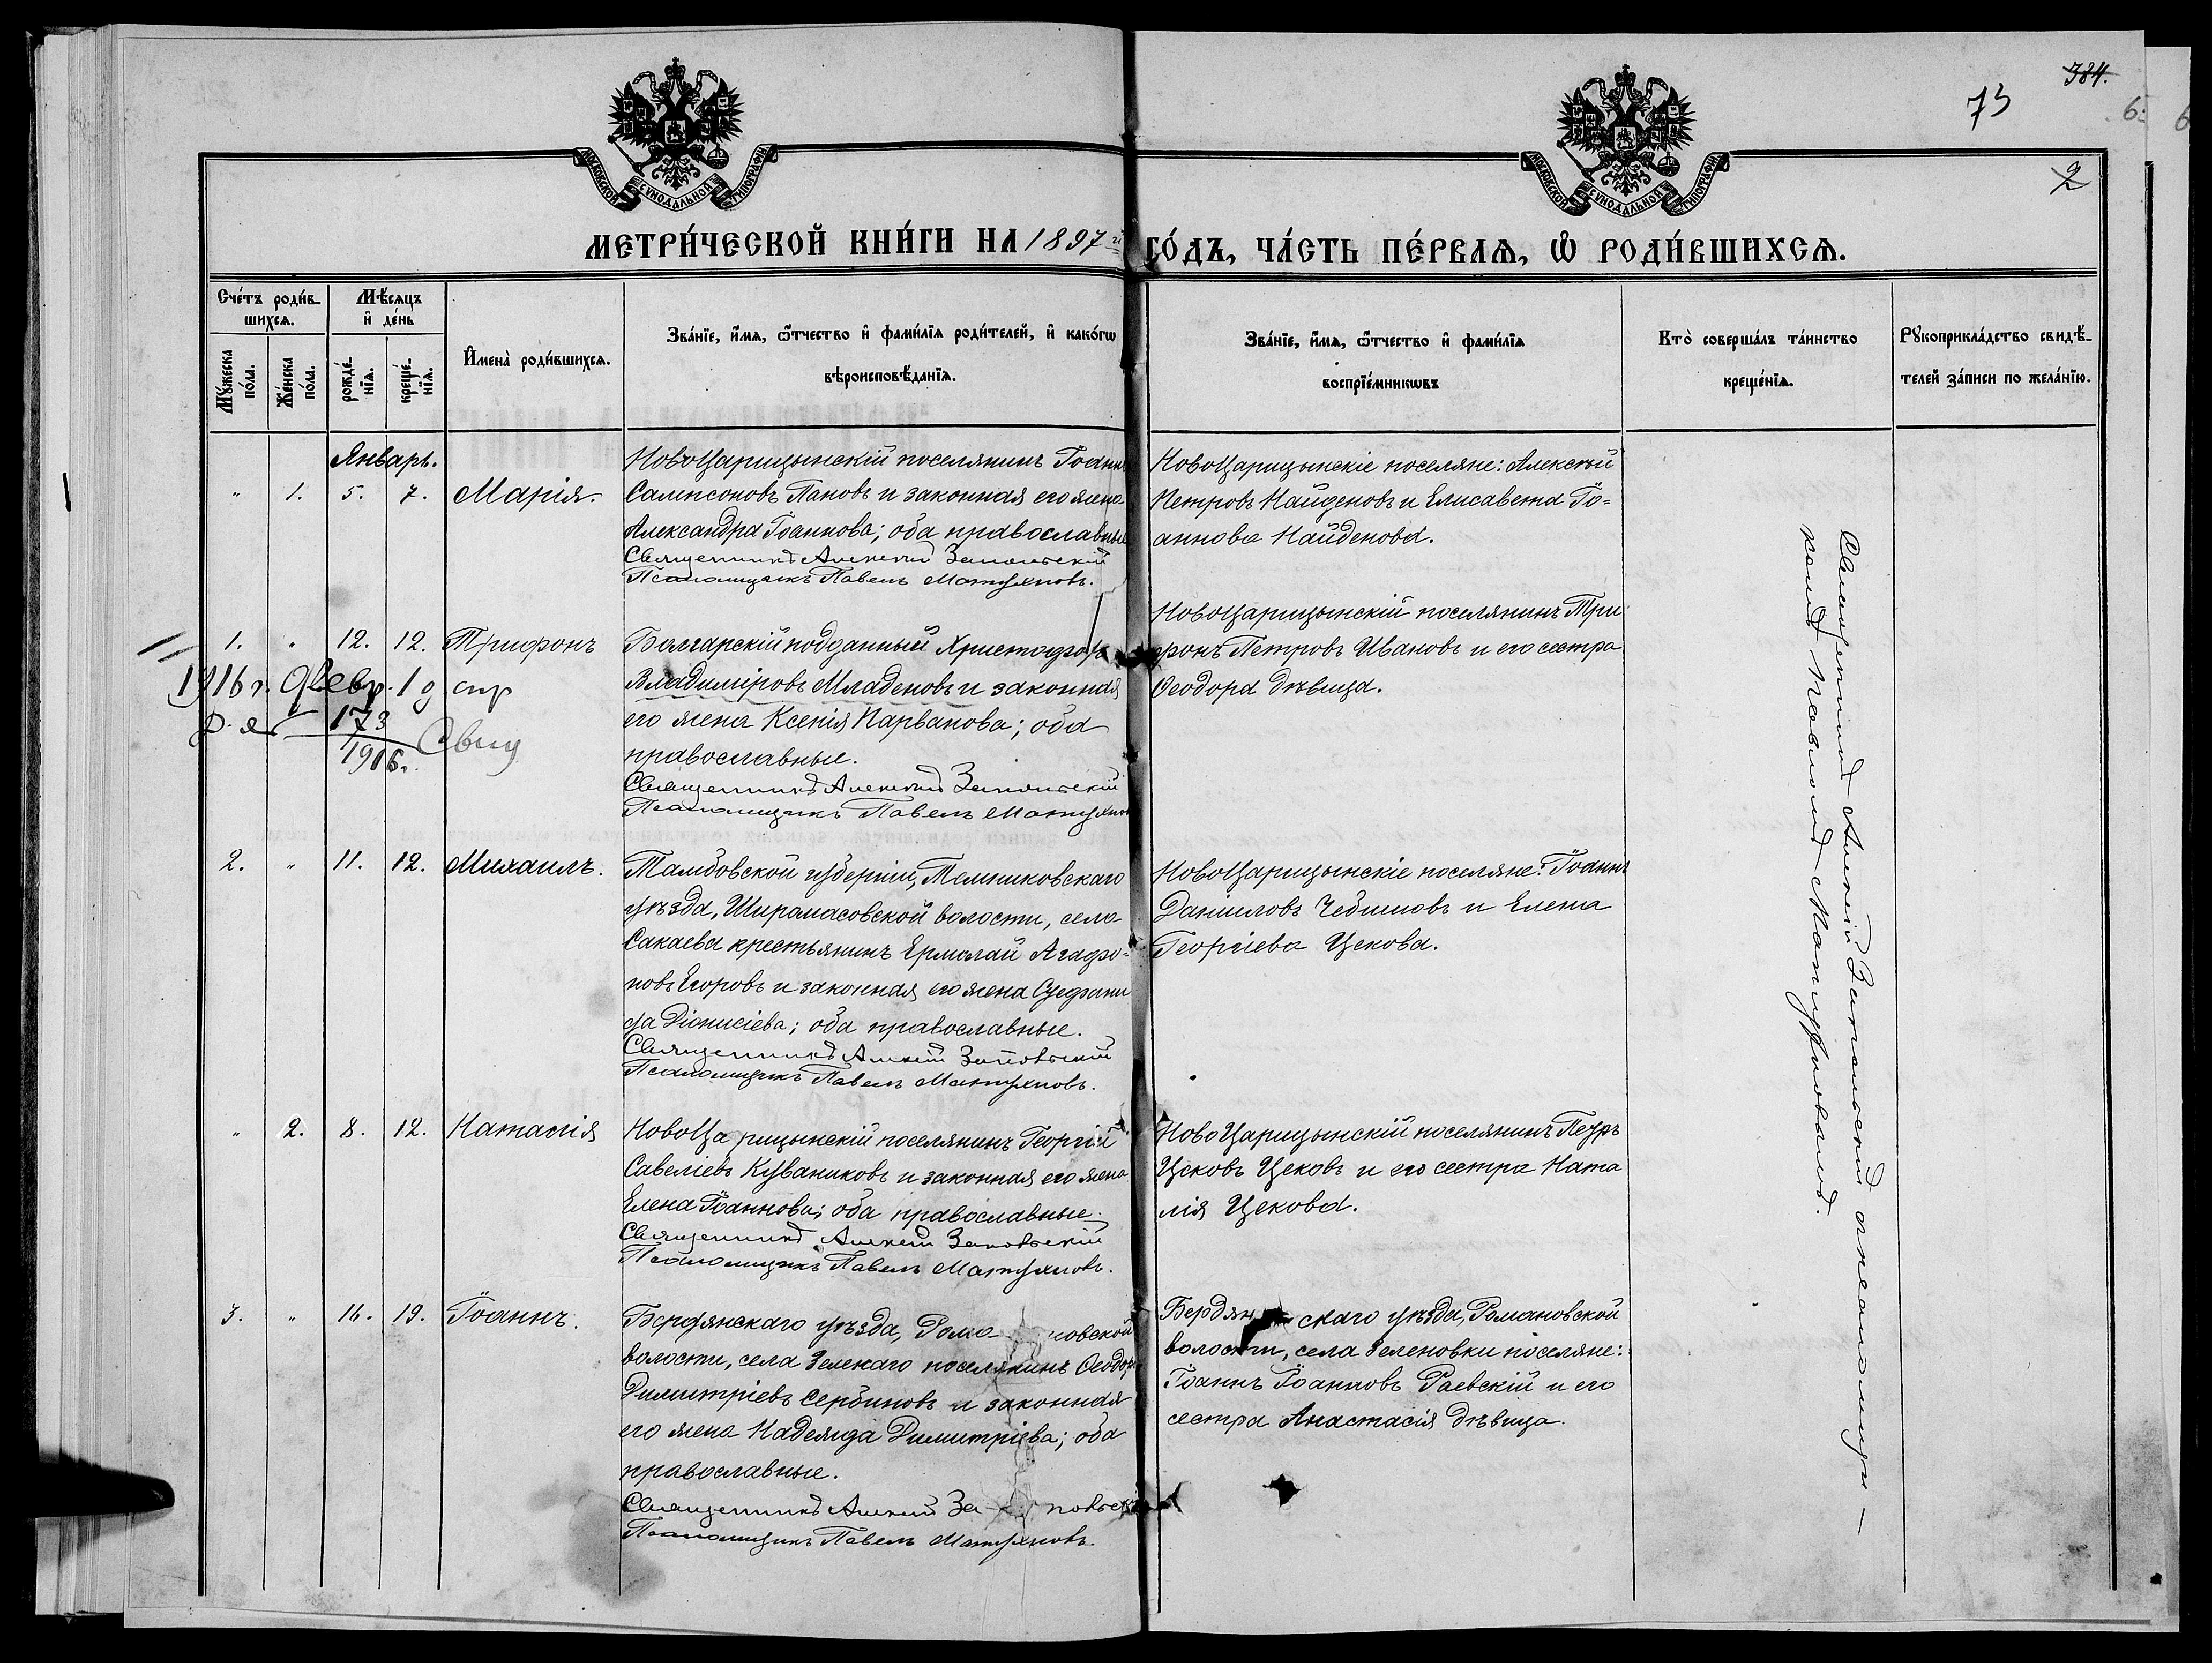 384.
73
6.
6
2
МОСКОВСКОЙ СѴНОДАЛЬНОЙ ТИПОГРАФІИ
МОСКОВСКОЙ СѴНОДАЛЬНОЙ ТИПОГРАФІИ
МЕТРИ́ЧЕСКОЙ КНИ́ГИ НА 1897 й ГО́ДЪ, ЧА́СТЬ ПЕ́РВАѦ, Ѡ РОДИ́ВШИХСѦ.
Сче́тъ роди́в-
шихсѧ.
Мѣ́сѧцъ
и де́нь
Мꙋ́жеска
по́ла.
Же́нска
по́ла.
рожде́-
нїѧ.
креще́-
нїѧ.
Имена̀ роди́вшихсѧ.
Зва́нїе, и́мѧ, ѻ́тчество и фами́лїѧ роди́телей, и како́гѡ
вѣроисповѣ́данїѧ.
Зва́нїе, и́мѧ, ѻ́тчество и фами́лїѧ
воспрїе́мникѡвъ
Кто̀ соверша́лъ та́инство
креще́нїѧ.
Рꙋкоприкла́дство свидѣ́-
телей за́писи по жела́нїю.
Январь.
" 1. 5. 7. Марія.
НовоЦарицынскій поселянинъ Іоаннъ
Самсоновъ Пановъ и законная его жена
Александра Іоаннова; оба православные
Священникъ Алексій Запольскій
Псаломщикъ Павелъ Матухновъ.
НовоЦарицынскіе поселяне: Алексѣй
Петровъ Найденовъ и Елисавета Іо=
аннова Найденова.
1. " 12. 12. Трифонъ
1916 г. Февр. 19
173
1916 г.
Болгарскій подданный Христофоръ
Владиміровъ Младеновъ и законная
его жена Ксенія Парванова; оба
православные.
Священникъ Алексій Запольскій
Псаломщикъ Павелъ Матухнов
НовоЦарицынскій поселянинъ Три
фонъ Петровъ Ивановъ и его сестра
Ѳеодора дѣвица.
2. " 11. 12. Михаилъ.
Тамбовской губерніи, Темниковскаго
уѣзда, Ширамасовской волости, села
Сакаева крестьянинъ Ермолай Агафо=
новъ Егоровъ и законная его жена Стефани
да Діонисіева; оба православные.
Священникъ Алексій Запольскій
Псаломщикъ Павелъ Матухновъ.
НовоЦарицынскіе поселяне: Іоаннъ
Даніиловъ Чебишовъ и Елена
Георгіева Цекова.
" 2. 8. 12. Наталія
НовоЦарицынскій поселянинъ Георгій
Савеліевъ Куваниковъ и законная его жена
Елена Іоаннова; оба православные.
Священникъ Алексій Запольскій
Псаломщикъ Павелъ Матухновъ.
НовоЦарицынскій поселянинъ Петръ
Цековъ Цековъ и его сестра Ната
лія Цекова.
3. " 16. 19. Іоаннъ.
Бердянскаго уѣзда, Романовской
волости, села Зеленаго поселянинъ Ѳеодоръ
Димитріевъ Сербиновъ и законная
его жена Надежда Димитріева; оба
православные.
Священникъ Алексій Запольск
Псаломщикъ Павелъ Матухновъ.
Бердянскаго уѣзда, Романовской
волости, села Зеленовки поселяне:
Іоаннъ Іоанновъ Раевскій и его
сестра Анастасія дѣвица.
Священникъ Алексій Запольскій съ псаломщи-
комъ Павломъ Матухновымъ.